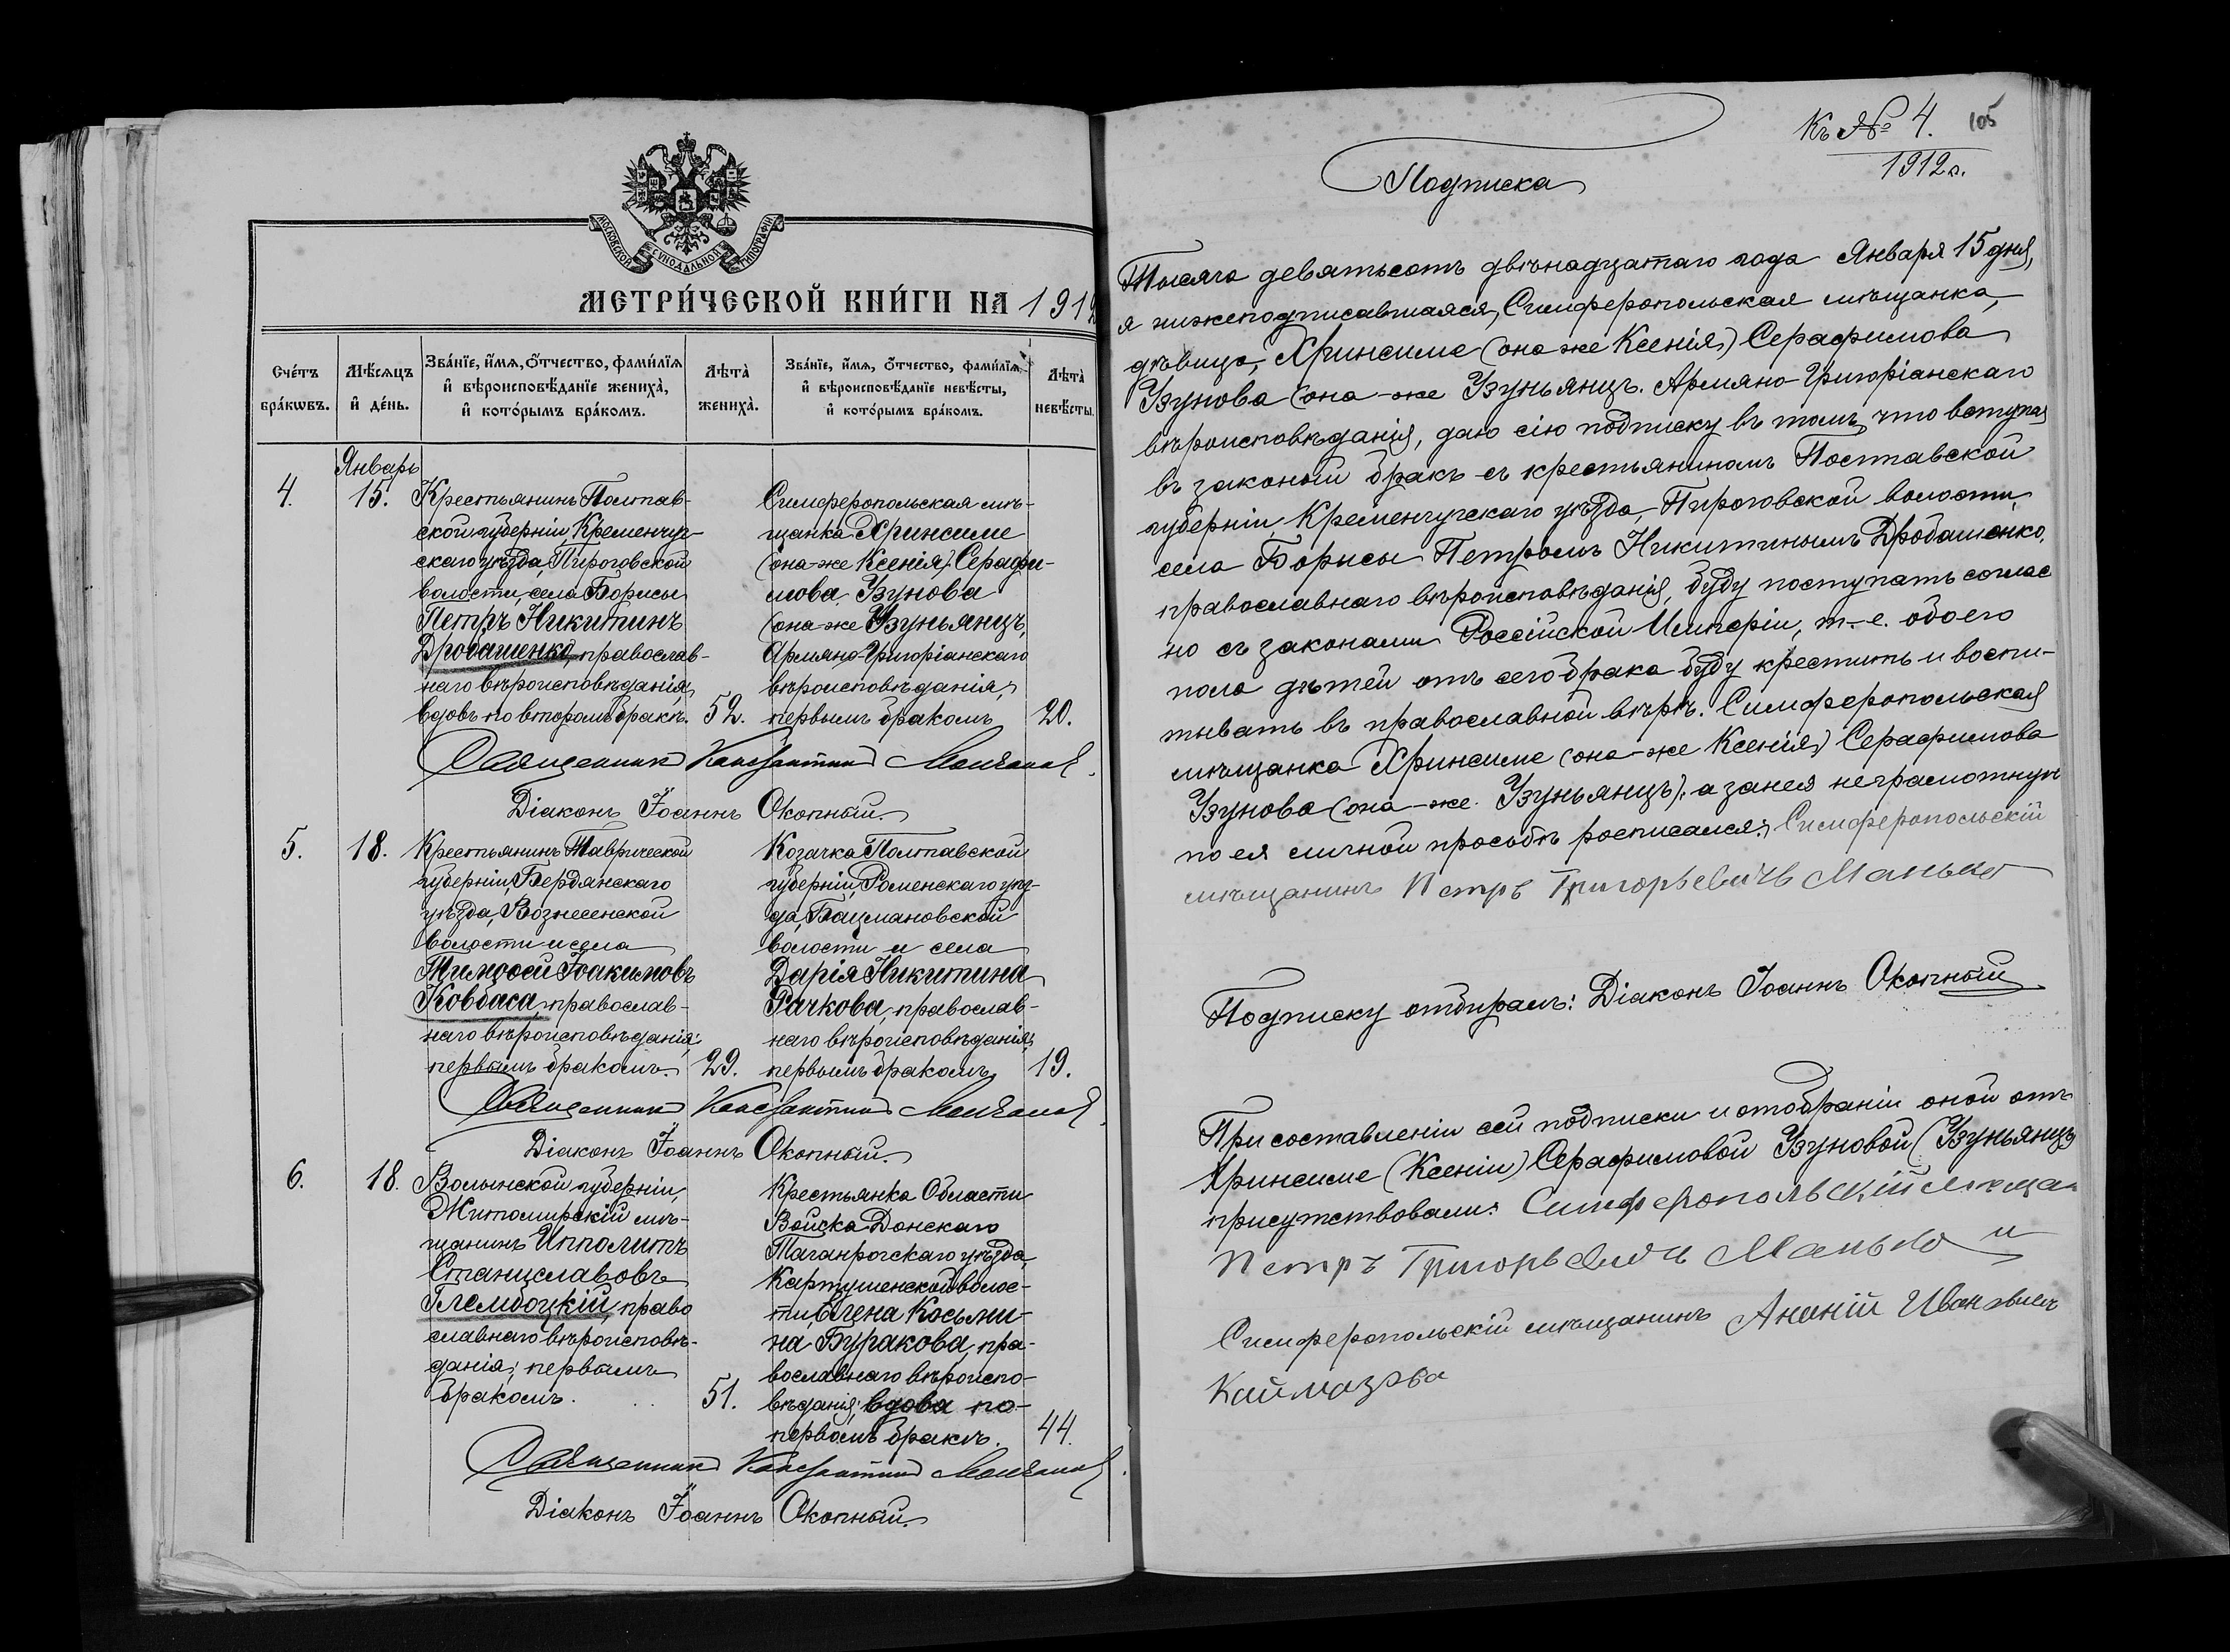 МОСКОВСКОЙ СѴНОДАЛЬНОЙ ТИПОГРАФІИ
МЕТРИ́ЧЕСКОЙ КНИ́ГИ НА 1912
Сче́тъ бра́кѡвъ.
Мѣ́сяцъ и҆ де́нь.
Зва́нїе, и҆́мѧ, ѻ҆́тчество, фами́лїѧ и҆ вѣроисповѣ́данїе жениха̀, и҆ кото́рымъ бра́комъ.
Лѣта̀ жениха̀.
Зва́нїе, и҆́мѧ, ѻ҆́тчество, фами́лїѧ и҆ вѣроисповѣ́данїе невѣ́сты, и҆ кото́рымъ бра́комъ.
Лѣта̀ невѣ́сты.
Январь
4. 15.
Крестьянинъ Полтав-
ской губерніи, Кременчуг-
скаго уѣзда, Пироговской
волости, села Борисы
Петръ Никитинъ
Дробашенко, православ-
наго вѣроисповѣданія,
вдовъ по второмъ бракѣ. 52.
Симферопольская мѣ-
щанка Хрипсиме
(она-же Ксенія) Серафи-
мова Узунова
(она-же Узуньянцъ,
Армяно-Григоріанскаго
вѣроисповѣданія,
первымъ бракомъ 20.
Священникъ Константинъ
Діаконъ Іоаннъ Окопный.
5. 18.
Крестьянинъ Таврической
губерніи, Бердянскаго
уѣзда, Вознесенской
волости и села
Тимофей Іоакимовъ
Ковбаса, православ-
наго вѣроисповѣданія;
первымъ бракомъ. 29.
Козачка Полтавской
губерніи, Роменскаго уѣз-
да, Бацмановской
волости и села
Дарія Никитина
Рачкова, православ-
наго вѣроисповѣданія;
первымъ бракомъ 19.
Священникъ Константинъ
Діаконъ Іоаннъ Окопный.
6. 18.
Волынской губерніи,
Житомирскій мѣ-
щанинъ Ипполитъ
Станиславовъ
Глембоцкій, право
славнаго вѣроисповѣ-
данія; первымъ
бракомъ. 51.
Крестьянка Области
Войска Донскаго
Таганрогскаго уѣзда,
Картушенской волос-
ти, Елена Косьми-
на Буракова, пра-
вославнаго вѣроиспо-
вѣданія; вдова по
первомъ бракѣ. 44.
Священникъ Константинъ
Діаконъ Іоаннъ Окопный.
Къ № 4. 105
1912 г.
Подписка
Тысяча девятьсотъ двѣнадцатаго года Января 15 дня,
я нижеподписавшаяся, Симферопольская мѣщанка,
дѣвица, Хрипсиме (она же Ксенія) Серафимова
Узунова (она-же Узуньянцъ. Армяно-Григоріанскаго
вѣроисповѣданія, даю сію подписку въ томъ, что вступая
въ законый бракъ съ крестьяниномъ Поставской
губерніи, Кременчугскаго уѣзда, Пироговской волости,
села Борисы Петромъ Никитинымъ Дробашенко,
православнаго вѣроисповѣданія, буду поступать соглас
но съ законами Россійской Имперіи, т.-е. обоего
пола дѣтей отъ сего брака буду крестить и воспи-
тывать въ православной вѣрѣ. Симферопольская
мѣщанка Хрипсиме (она-же Ксенія) Серафимова
Узунова (она-же Узуньянцъ); а за нея неграмотную
по ея личной просьбѣ росписался: Симферопольскій
мѣщанинъ Петръ Григорьевичъ Манько
Подписку отбиралъ: Діаконъ Іоаннъ Окопный
При составленіи сей подписки и отобраніи оной отъ
Хрипсиме (Ксеніи) Серафимовой Узуновой (Узуньянцъ
присутствовали: Симферопольскій мѣща
Петръ Григорьевичъ Манько и
Симферопольскій мѣщанинъ Ананій Ивановичъ
Каймазова